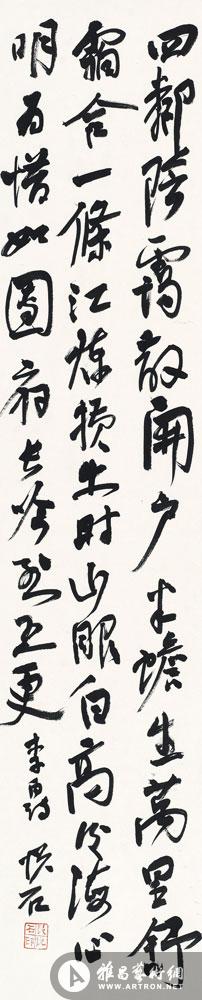 四鄰陰靄散開戶半蟾生萬里舒
霜合一條江練横出時山眼白高後海心
明為惜如團扇長吟到五更 李白詩 石
雅昌藝術網
WWW.ARTRON.NET